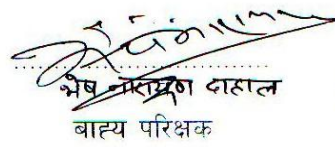 भेष नारायण दाहाल
बाह्य परिक्षक